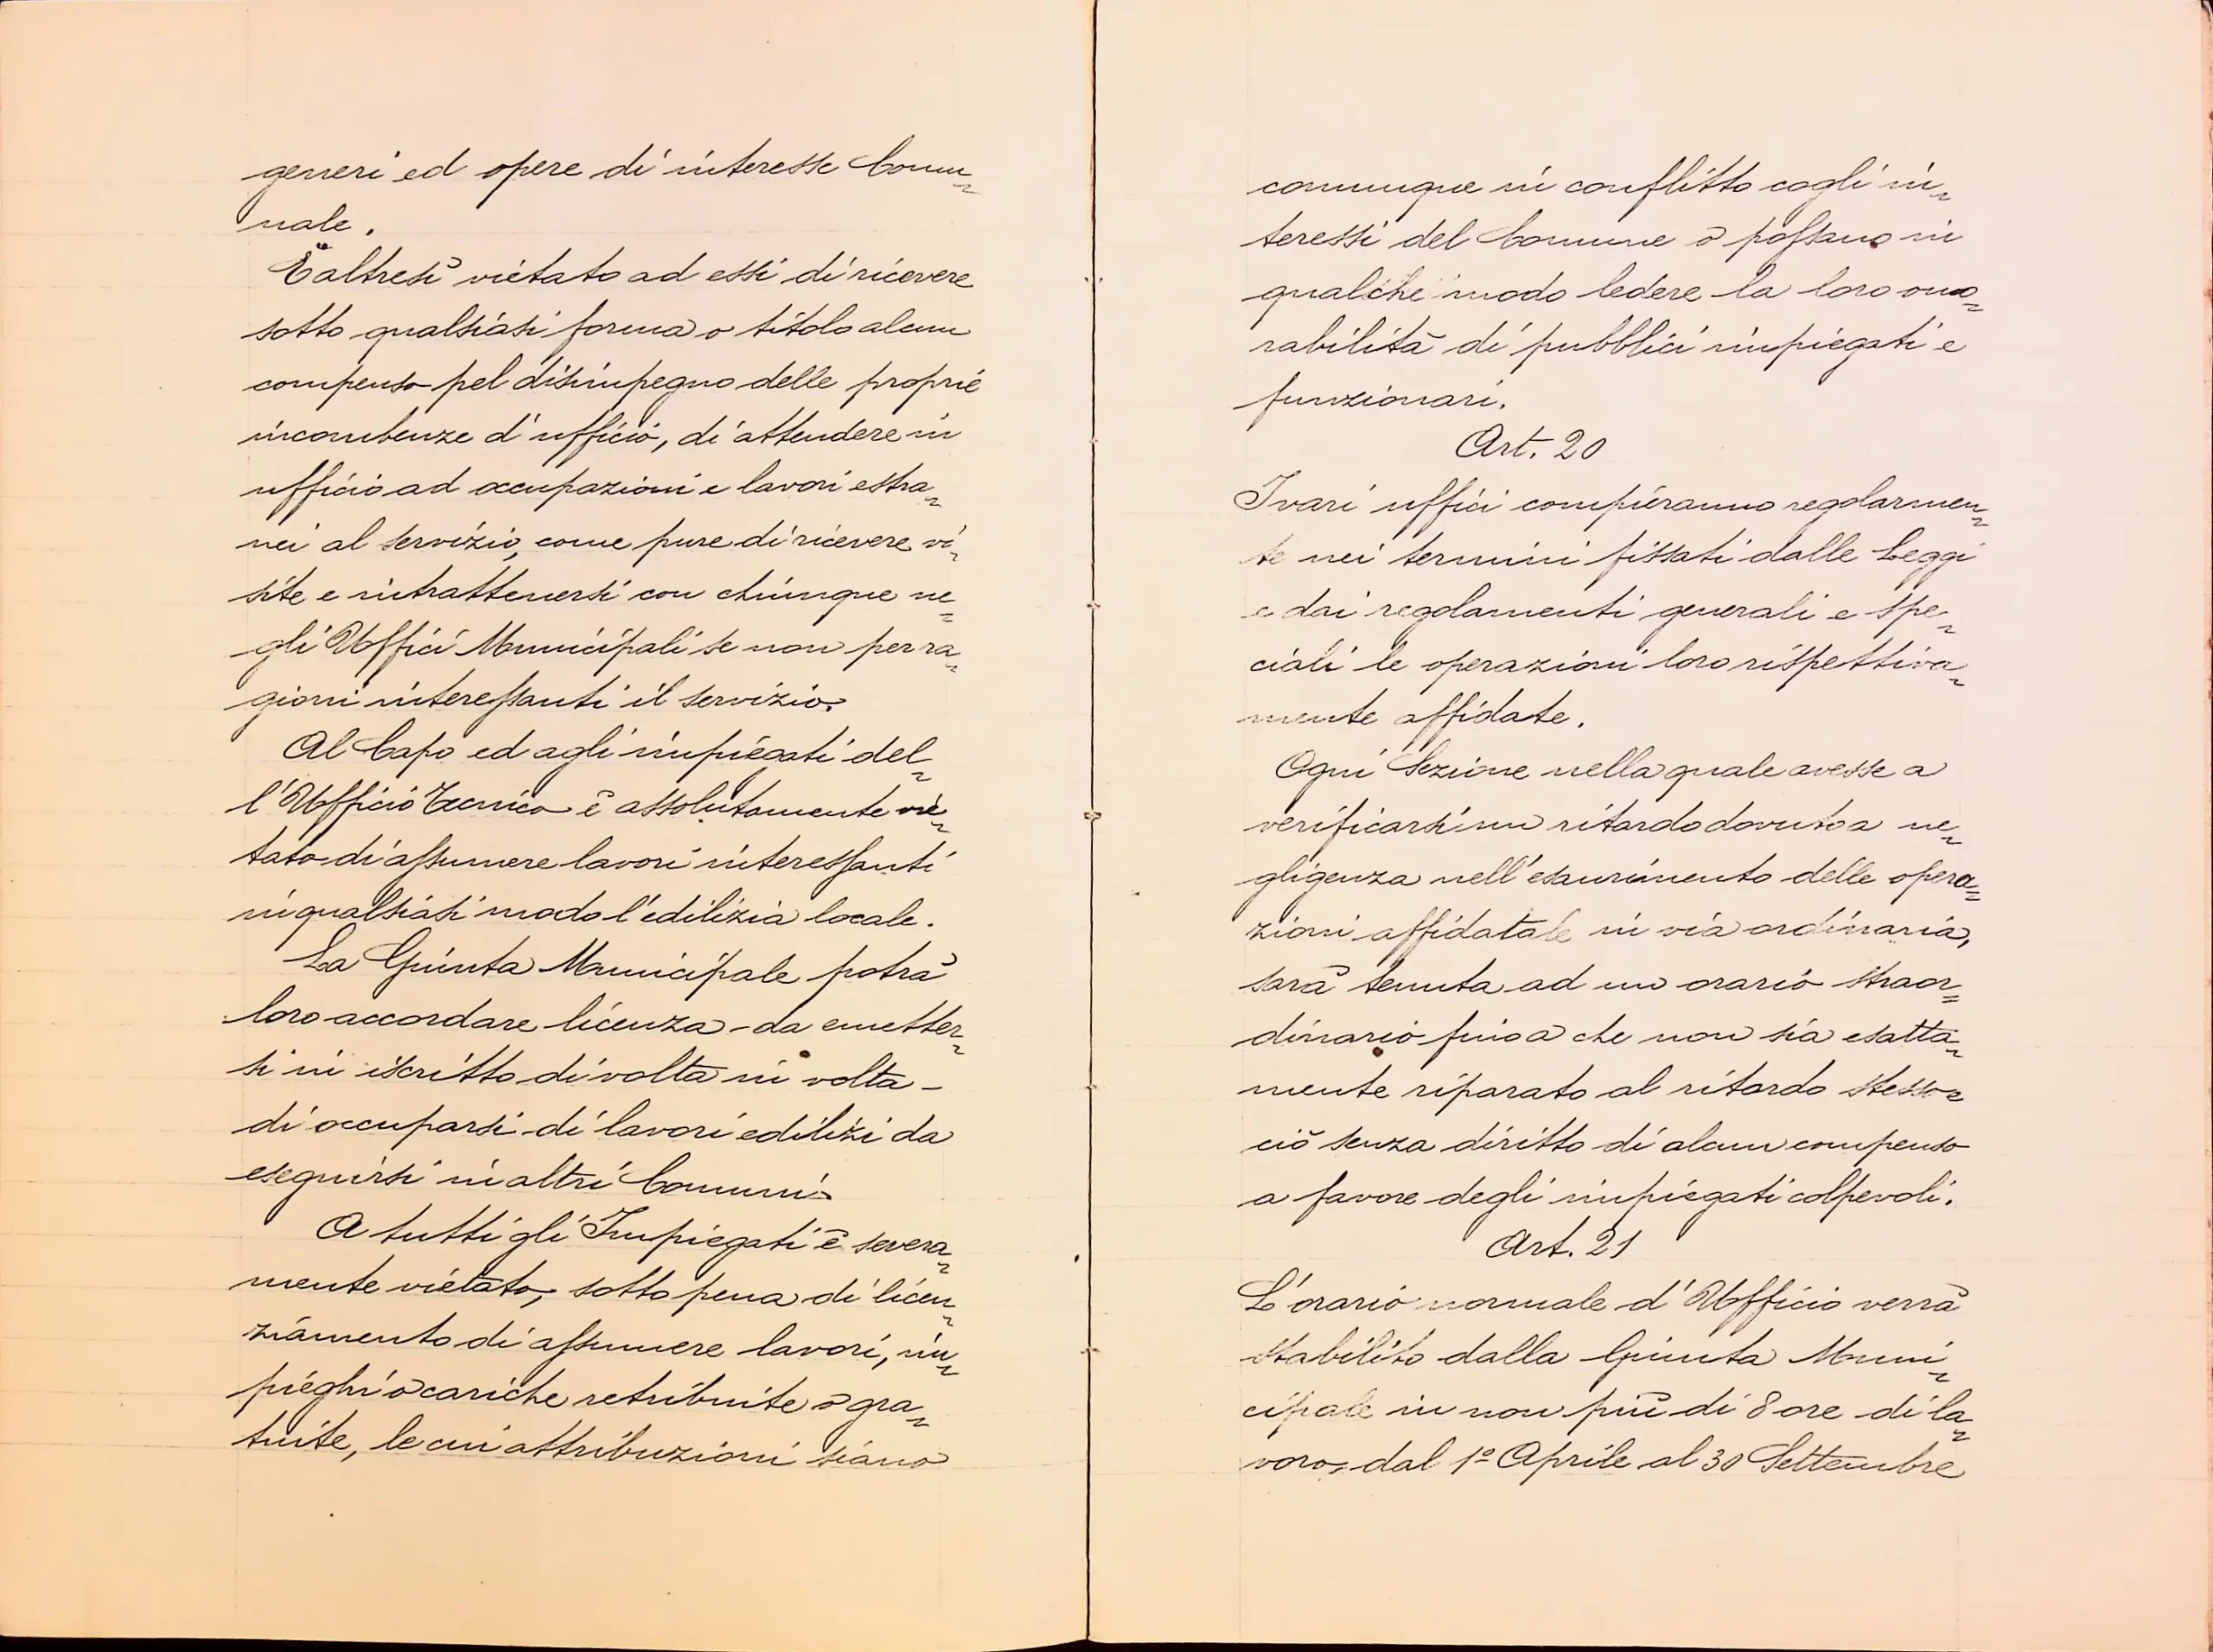 generi ed opere di interesse Comu=
nale.
È altresì vietato ad essi di ricevere
sotto qualsiasi forma o titolo alcun
compenso pel disimpegno delle proprie
incombenze d'ufficio, di attendere in
ufficio ad occupazioni e lavori estra=
nei al servizio, come pure di ricevere vi=
site e intrattenersi con chiunque ne=
gli Uffici Municipali se non per ra=
gioni interessanti il servizio.
Al Capo ed agli impiegati del=
l'Ufficio Tecnico è assolutamente vie=
tato di assumere lavori interessanti
in qualsiasi modo l'edilizia locale.
La Giunta Municipale potrà
loro accordare licenza - da emetter=
si in iscritto di volta in volta -
di occuparsi di lavori edilizi da
eseguirsi in altri Comuni.
A tutti gli Impiegati è severa=
mente vietato, sotto pena di licen=
ziamento di assumere lavori, im=
pieghi o cariche retribuite o gra=
tuite, le cui attribuzioni siano
comunque in conflitto cogli in=
teressi del Comune o possano in
qualche modo ledere la loro ono=
rabilità di pubblici impiegati e
funzionari.
Art. 20
I vari uffici compieranno regolarmen=
te nei termini fissati dalle Leggi
e dai regolamenti generali e spe=
ciali le operazioni loro rispettiva=
mente affidate.
Ogni Sezione nella quale avesse a
verificarsi un ritardo dovuto a ne=
gligenza nell'esaurimento delle opera=
zioni affidatale in via ordinaria,
sarà tenuta ad un orario straor=
dinario fino a che non sia esatta=
mente riparato al ritardo stesso e
ciò senza diritto di alcun compenso
a favore degli impiegati colpevoli.
Art. 21
L'orario normale d'Ufficio verrà
stabilito dalla Giunta Muni=
cipale in non più di 8 ore di la=
voro, dal 1º Aprile al 30 Settembre